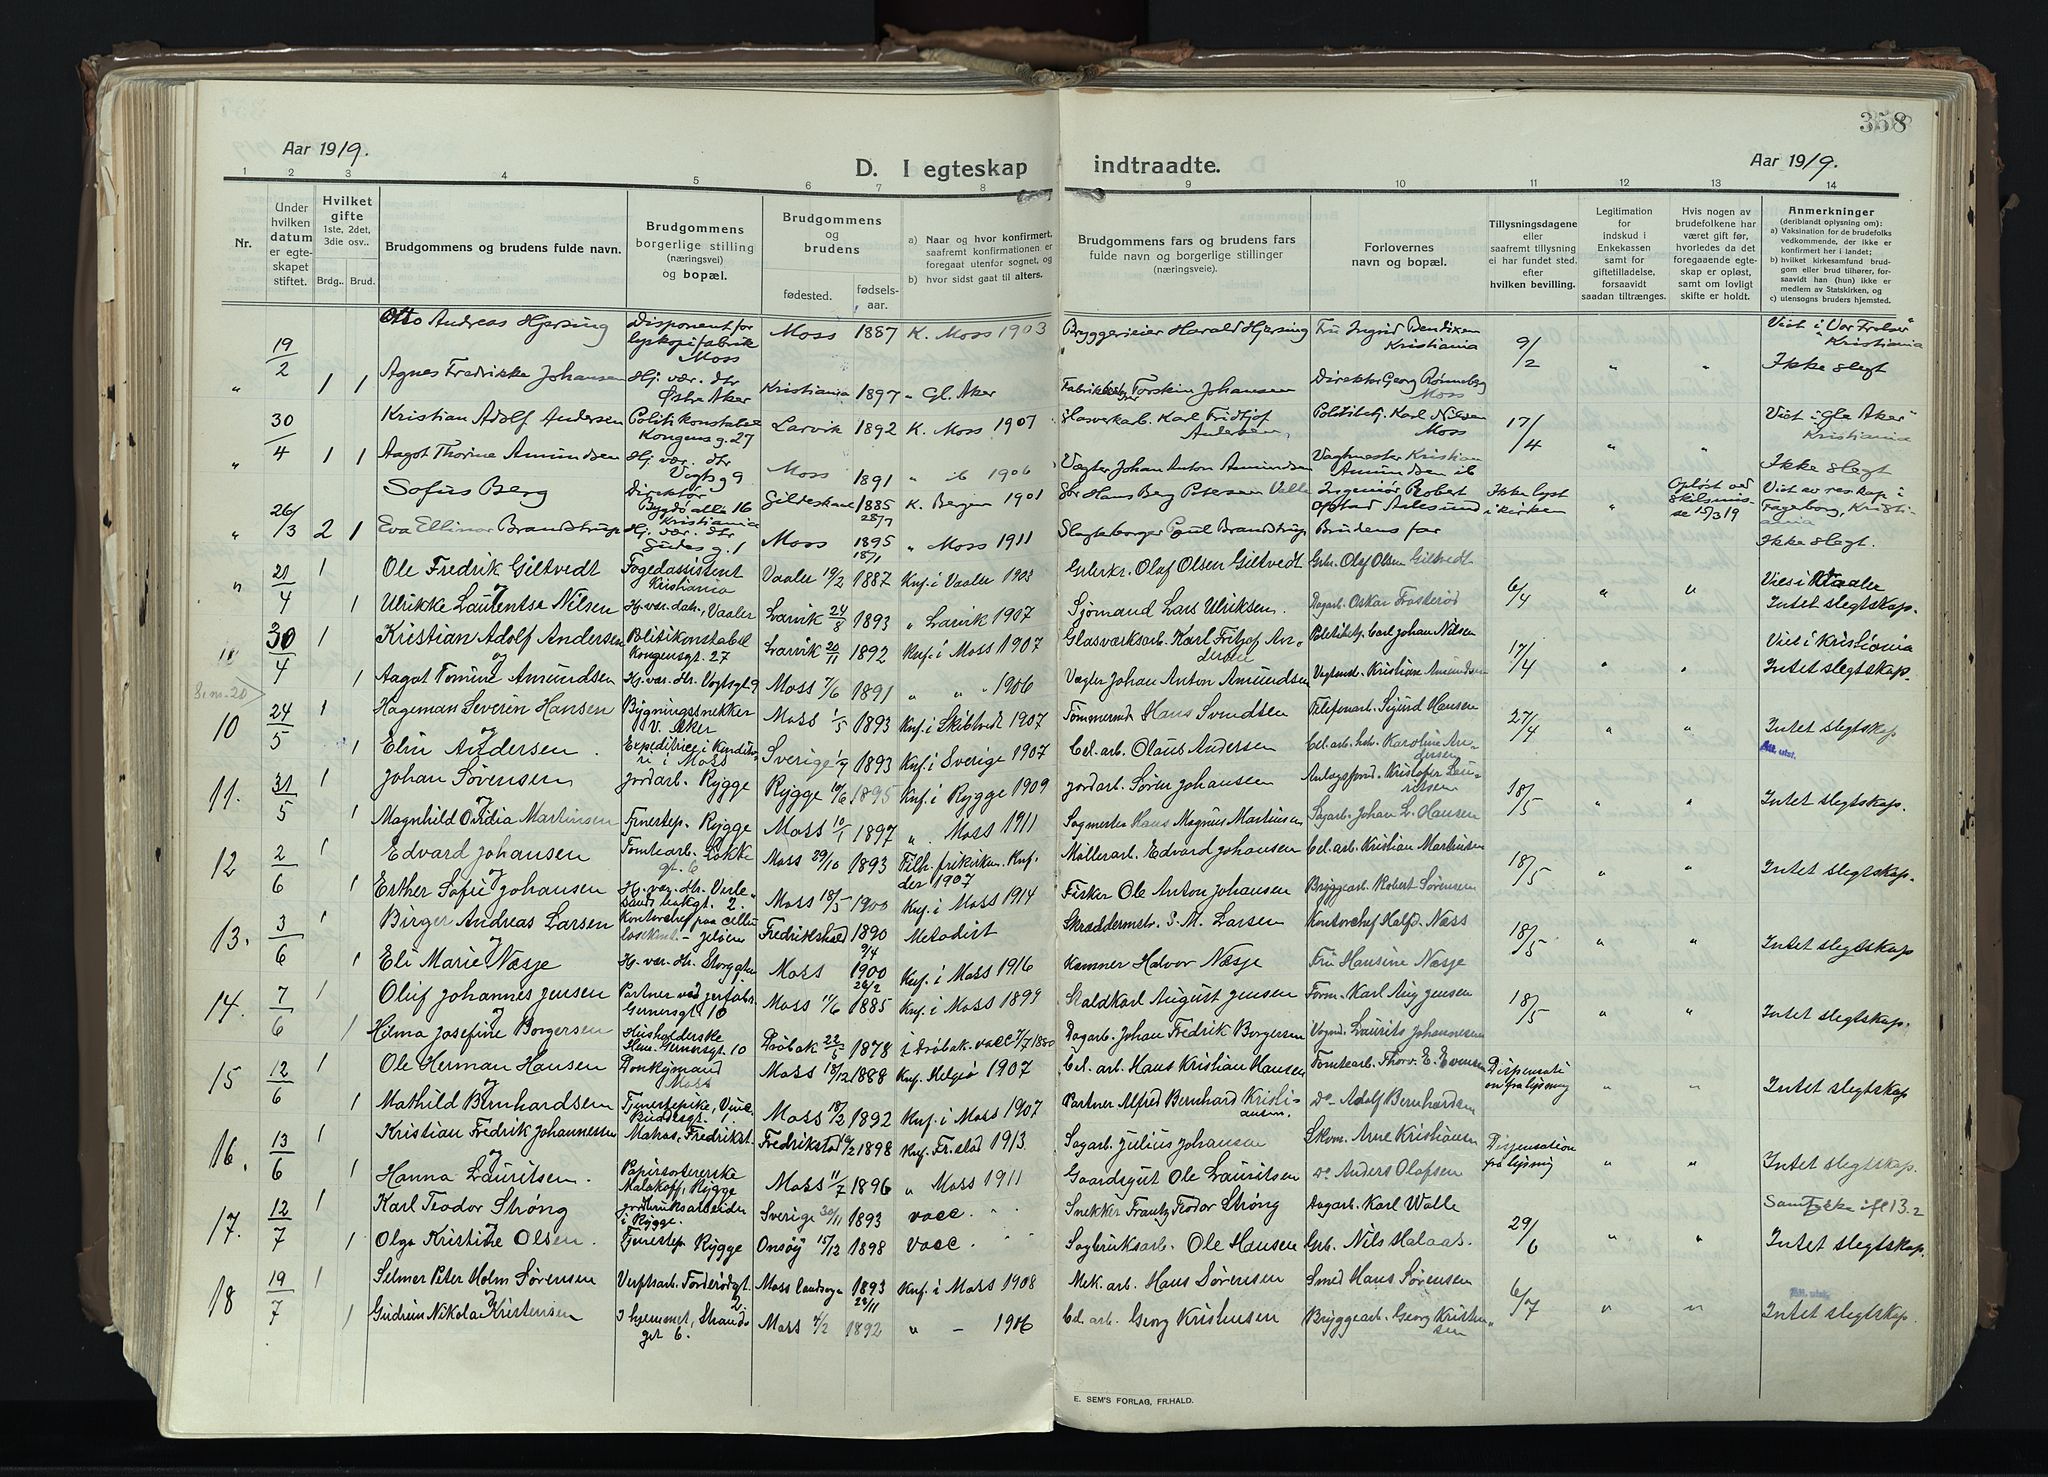 358
Aar 1919.
D. I egteskap indtraadte.
Aar 1919.
1 2 3 4 5 6 7 8 9 10 11 12 13 14
Nr.
Under hvilken datum er egteskapet stiftet.
Hvilket gifte 1ste, 2det, 3die osv..
Brdg.. Brud.
Brudgommens og brudens fulde navn.
Brudgommens borgerlige stilling (næringsvei) og bopæl.
Brudgommens og brudens
fødested.
fødselsaar.
a) Naar og hvor konfirmert, saafremt konfirmationen er foregaat utenfor sognet, og
b) hvor sidst gaat til alters.
Brudgommens fars og brudens fars fulde navn og borgerlige stillinger (næringsveie).
Forlovernes navn og bopæl.
Tillysningsdagene eller saafremt tillysning ei har fundet sted. efter hvilken bevilling.
Legitimation for indskud i Enkekassen samt for giftetilladelse, forsaavidt saadan tiltrænges.
Hvis nogen av brudefolkene har været gift før, hvorledes da det foregaaende egteskap er opløst, samt om lovligt skifte er holdt.
Anmerkninger (deriblandt oplysning om): a) Vaksination for de brudefolks vedkommende, der ikke er konfirmert her i landet; b) hvilket kirkesamfund brudgom eller brud tilhører, forsaavidt han (hun) ikke er medlem av Statskirken, og c) utensogns bruders hjemsted.
19/2 Otto Andreas Hjersing Disponent for lyskopifabrik Moss Moss 1887 K. Moss 1903 Bryggerieier Harald Hjersing Fru Ingrid Bendixen Kristiania 9/2 " " Viet i "Vor Frelser" Kristiania
" 1 1 Agnes Fredrikke Johansen Hj. vær. dtr Østre Aker Kristiania 1897 " Gl. Aker Torstein Johansen Direktør Georg Rønneberg Moss Ikke slegt
30/4 Kristian Adolf Andersen Politikonstabel Kongens g. 27 Larvik 1892 K. Moss 1907 Glasverkarb. Karl Fridtjof Andersen, Politibetj. Karl Nilsen Moss 17/4 " " Viet i "Gle Aker" Kristiania
" 1 1 Aagot Thorine Amundsen Hj. vær. dtr Vogts g 9 Moss 1891 " ib 1906 Vægter Johan Anton Amundsen Vagtmester Kristian Amundsen ib Ikke slegt
26/3 Sofus Berg Direktør Bygdø allé 16 Kristiania Gildeskaal 1885 28/7 K. Bergen 1901 Gbr Hans Berg Petersen Valle Ingeniør Robert Opstad Aalesund Ikke lyst i kirken " Opløst ved skilsmisse 15/3 19 Viet av res kap i Fagerborg, Kristiania
" 2 1 Eva Ellinor Brandstrup Hj. vær. dtr Gudes g. 1 Moss 1895 18/1 " Moss 1911 Slagteborger Poul Brandstrup Brudens far Ikke slegt.
" 21/4 1 Ole Fredrik Giltvedt Fogedassistent Kristiania Vaaler 19/2 1887 Knf. i Vaaler 1903 Olaf Olsen Giltvedt Gbr. Olaf Olsen Giltvedt 6/4 " " Vies i Vaaler
og
1 Ulrikke Laurentse Nilsen Hj. vær. datr, Vaaler Larvik 24/8 1893 " Larvik 1907 Sjømand Lars Ulriksen. Dagarb. Oskar Frosterød Intet slegtskap.
30/4 1 Kristian Adolf Andersen Politikonstabel Kongensgt. 27 Larvik 20/11 1892 Knf. i Moss 1907 Glasværksarb. Karl Fritjof Andersen Politibetj. Carl Johan Nilsen 17/4 " " Vies i Kristiania
og
1 Aagot Tomine Amundsen Hj. vær. dtr. Vogtsgt 9 Moss 7/6 1891 " " 1906 Vægter Johan Anton Amundsen Kristian Amundsen Intet slegtskap.
10 24/5 1 Hageman Severin Hansen Bygningssnekker V. Aker Moss 1/5 1893 Knf. i Skibtvedt 1907 Tømmermd Hans Svendsen Telefonarb. Sigurd Hansen 27/4 " " Intet slegtskap
og
1 Elin Andersen. Expeditrice i Konditori i Moss Sverige 1893 Knf. i Sverige 1907 Cel. arb. Olaus Andersen Karoline Andersen Att. utst.
11. 31/5 1 Johan Sørensen Jordarb. Rygge Rygge 10/6 1895 Knf. i Rygge 1909 Jordarb. Søren Johansen Kristofer Lauritsen 18/5 " " Intet slegtskap.
og
1 Magnhild Ovidia Martinsen Tjenestep. Rygge Moss 10/1 1897 " Moss 1911 Sagmester Hans Magnus Martinsen Sagarb. Johan L. Hansen
12 2/6 1 Edvard Johansen Tomtearb. Løkkegt. 6 Moss 29/10 1893 Tilh. frikirken. Knf. der 1907 Møllerarb. Edvard Johansen Cel. arb. Kristian Martinsen 18/5 " " Intet slegtskap.
og
1 Esther Sofie Johansen Hj. vær. dtr. Verlesands bakgt. 2. Moss 18/5 1900 Knf. i Moss 1914 Fisker Ole Anton Johansen Bryggearb. Robert Sørensen
13. 3/6 1 Birger Andreas Larsen Kontorchef paa Jeløen Fredrikshald 1890 9/4 Metodist Skræddermstr. S. M. Larsen Kontorchef Halfd. Næss 18/5 " " Intet slegtskap
og
1 Eli Marie Næsje Hj. vær. dtr. Storggten Moss 1900 26/2 Knf. i Moss 1916 Kæmner Halvor Næsje Fru Hansine Næsje
14. 7/6 1 Oluf Johannes Jensen Partner ved jerfabr. Gernersgt. 10 Moss 11/6 1885 Knf. i Moss 1899 Staldkarl August Jensen Form. Karl Aug Jensen 18/5 " " Intet slegtskap.
og
1 Hilma Josefine Borgersen Husholderske Gernersgt. 10 Drøbak 22/5 1878 i Drøbak. vacc 7/7 1880 Dagarb. Johan Fredrik Borgersen Laurits Johannesen
15 12/6 1 Ole Herman Hansen Donkymand Moss Moss 18/12 1888 Knf. Helgiø 1907 Cel. arb. Hans Kristian Hansen Tomtearb. Thorv. E. Evensen Dispensation fra lysning " " Intet slegtskap.
og
1 Mathild Bernhardsen Tjenestepike, Moss 18/2 1892 Knf. i Moss 1907 Partner Alfred Bernhard Kristiansen. Do Adolf Bernhardsen
16. 13/6 1 Kristian Fredrik Johannessen Matros, Fredrikst. Fredrikstad 1898 Knf. Fr.stad 1913 Sagarb. Julius Johansen Arne Kristiansen Dispensation fra lysning " " Intet slegtskap.
og
1 Hanna Lauritsen. Papirsortererske Malakoff, Rygge Moss 11/7 1896 " Moss 1911 Gaardsgut Ole Lauritsen Do Anders Olafsen
17. 12/7 1 Karl Teodor Strøng Jordbruksarbeider i Rygge. Sverige 30/11 1893 vacc. " " Snekker Frantz Teodor Strøng Dagarb. Karl Walle 29/6 " " Samtykke ifl 13.2
og
1 Olga Kristine Olsen. Tjenestep. Rygge Onsøy 15/12 1898 vacc. " " Sagbruksarb. Ole Hansen Grb. Nils Halaas. Intet slegtskap.
18 19/7 1 Selmer Peter Holm Sørensen Verftsarb. Torderødgt. 2. Moss landsogn 1893 22/11 Knf. i Moss 1908 Mek. arb. Hans Sørensen Smed Hans Sørensen 6/7 " " Att. utst.
og
1 Gudrun Nikolea Kristensen I hjemmet, Strandgt 6. Moss 1/2 1892 " — 1906 Cel. arb. Georg Kristensen Bryggearb. Georg Kristensen Intet slegtskap.
E. SEM'S FORLAG, FR.HALD.